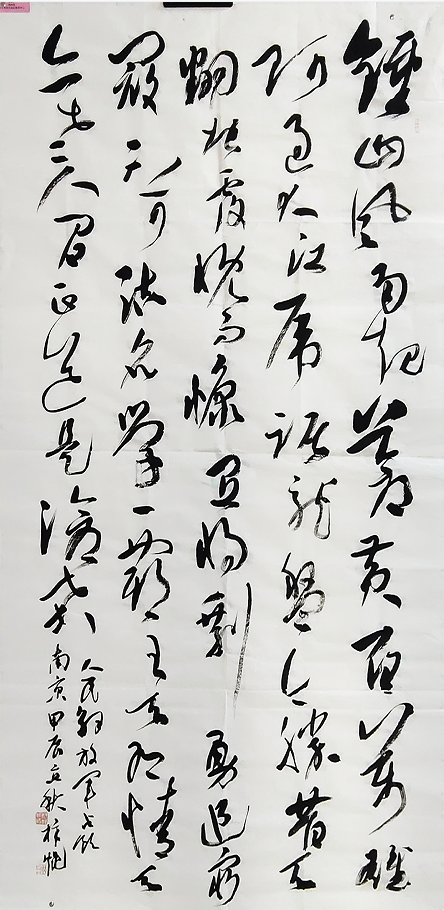 鍾山風雨起蒼黄百萬雄
师過大江虎踞龍盤今勝昔天
翻地覆慨而慷宜将剩勇追窮
寇不可沽名學霸王天若有情天
亦老人间正道是滄桑
人民解放軍占领
南京甲辰立秋